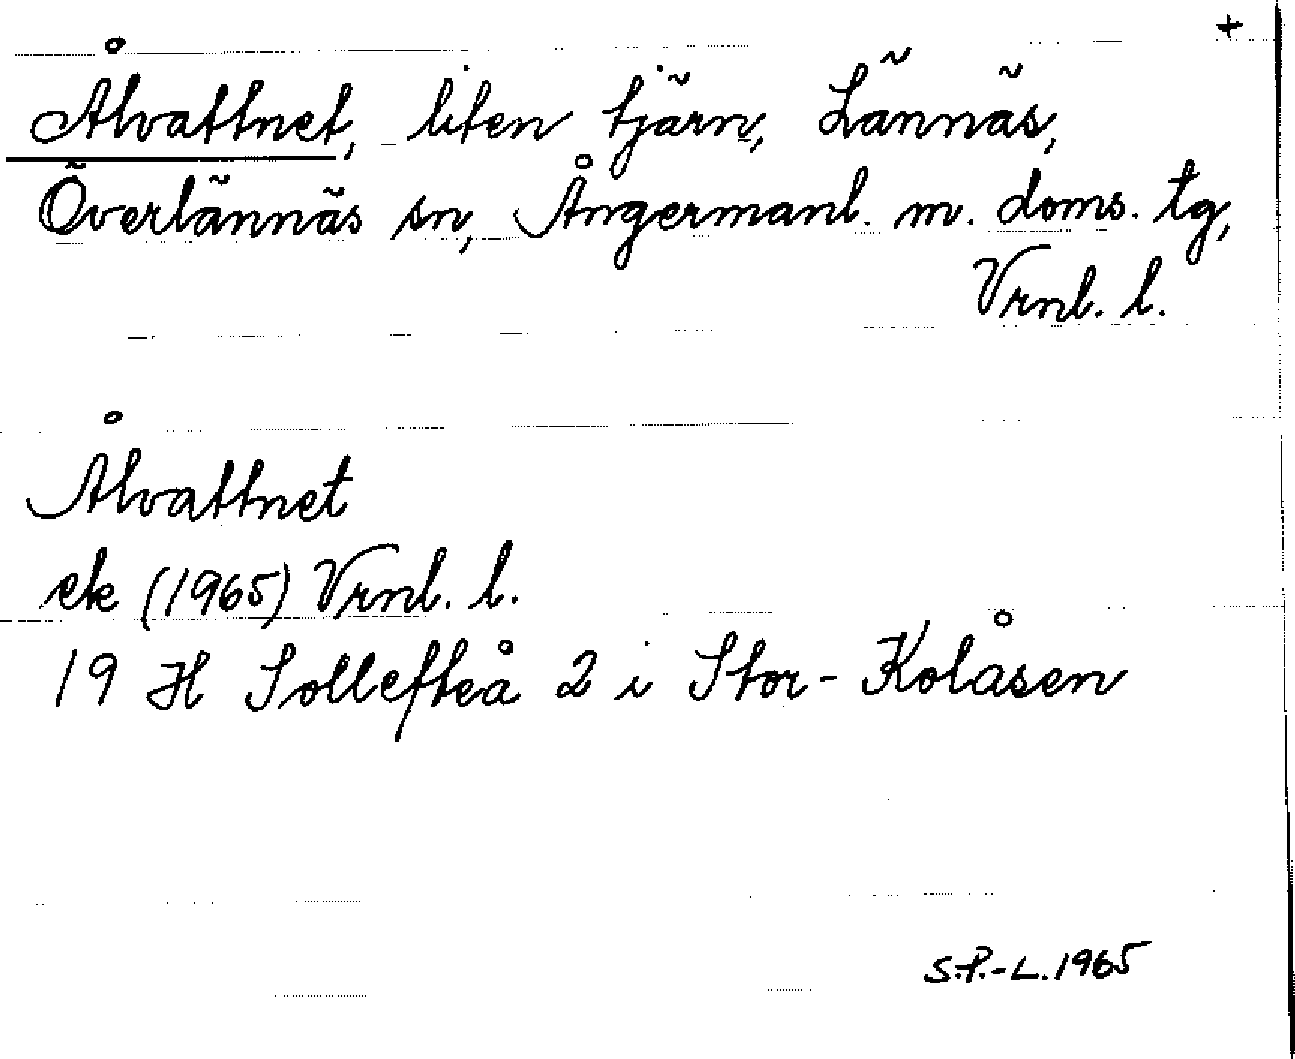 +
Ålvattnet, liten tjärn, Lännäs,
Överlännäs sn, Ångermanl. m. doms. tg,
Vrnl. l.
Ålvattnet
ek (1965) Vrnl. l.
19 H Sollefteå 2 i Stor-Kolåsen
S.P.-L. 1965